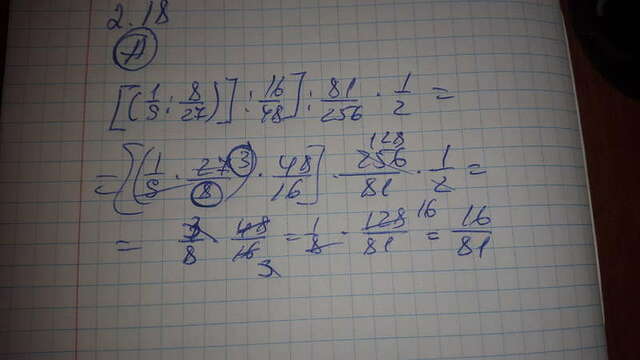 2.18
А
[(1/9 : 8/27)] : 16/48] : 81/256 · 1/2 =
= [(1/9 · 27 3/8) · 48/16] · 256 128/81 · 1/2 =
= 3/8 · 48/16 3 = 1/8 · 128 16/81 = 16/81